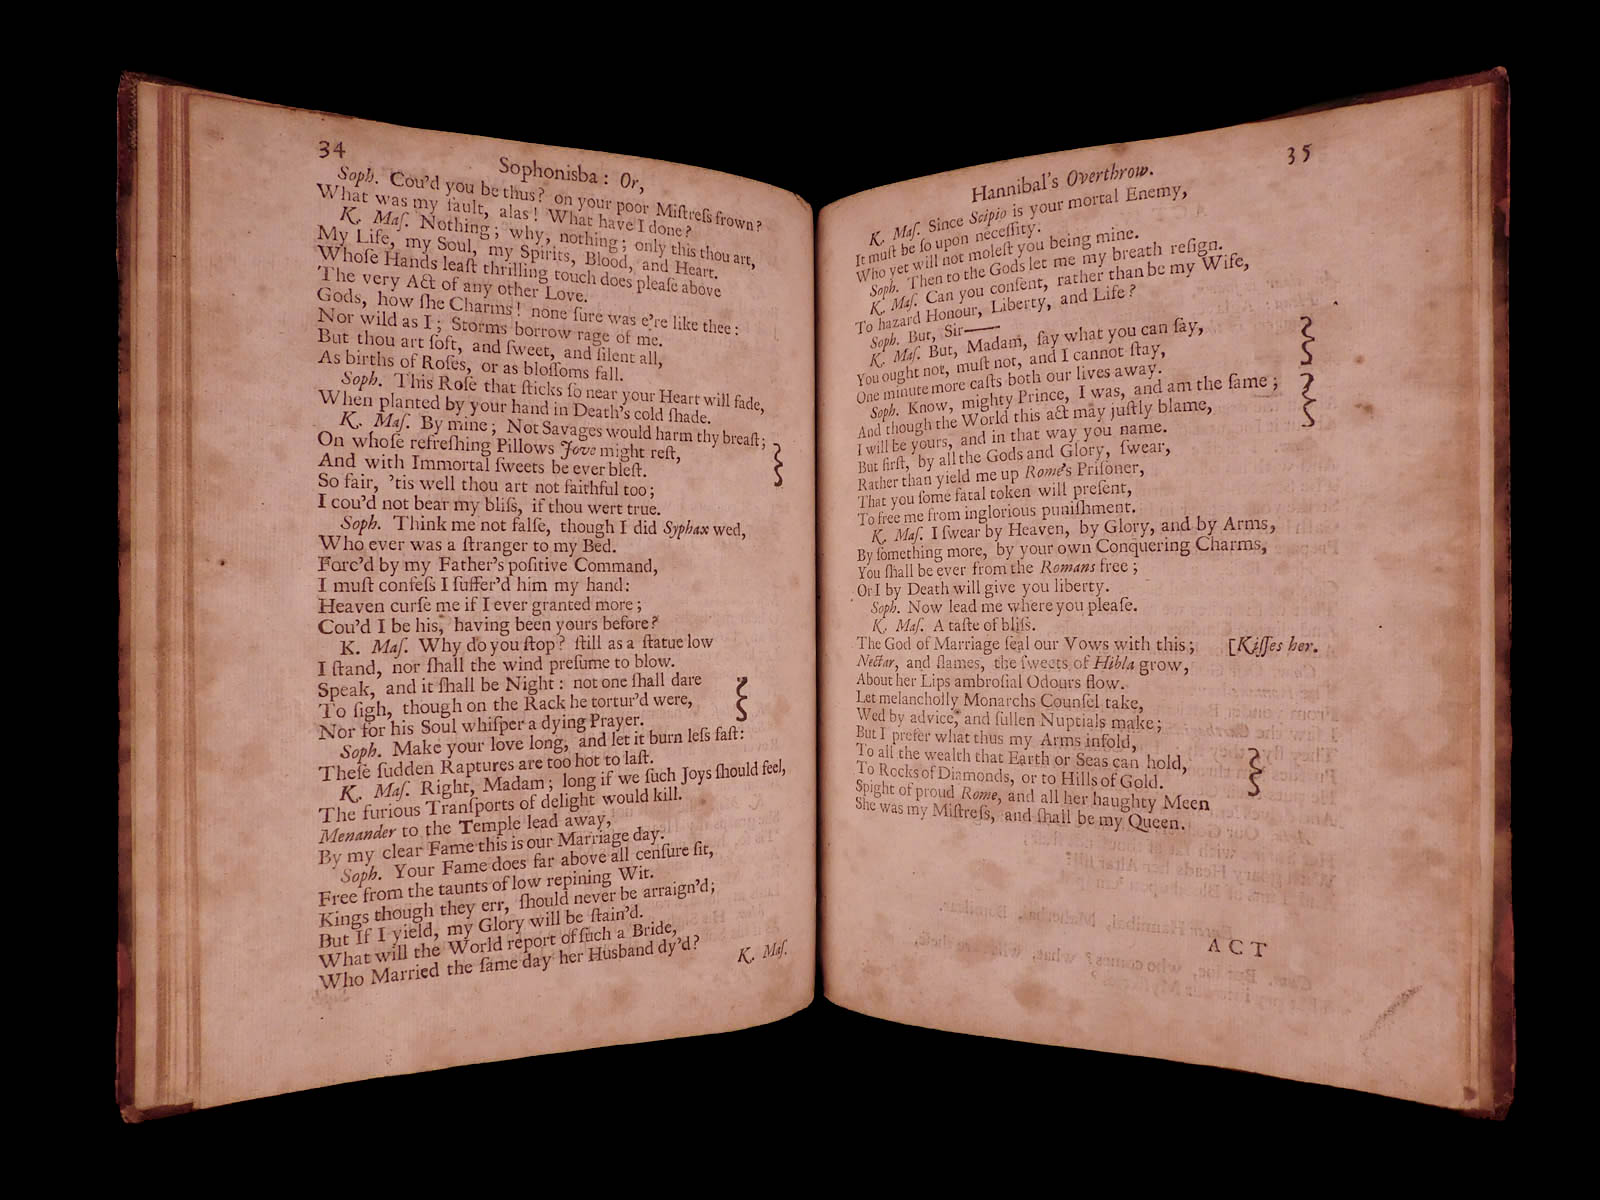 34
Sophonisba: Or,
Soph. Cou'd you be thus? on your poor Miſtreſs frown?
What was my fault, alas! What have I done?
K. Maſ. Nothing; why, nothing; only this thou art,
My Life, my Soul, my Spirits, Blood, and Heart.
Whoſe Hands leaſt thrilling touch does pleaſe above
The very Act of any other Love.
Gods, how ſhe Charms! none ſure was e're like thee:
Nor wild as I; Storms borrow rage of me.
But thou art ſoft, and ſweet, and ſilent all,
As births of Roſes, or as bloſſoms fall.
Soph. This Roſe that ſticks ſo near your Heart will fade,
When planted by your hand in Death's cold ſhade.
K. Maſ. By mine; Not Savages would harm thy breaſt;
On whoſe refreſhing Pillows Jove might reſt,
And with Immortal ſweets be ever bleſt.
So fair, 'tis well thou art not faithful too;
I cou'd not bear my bliſs, if thou wert true.
Soph. Think me not falſe, though I did Syphax wed,
Who ever was a ſtranger to my Bed.
Forc'd by my Father's poſitive Command,
I muſt confeſs I ſuffer'd him my hand:
Heaven curſe me if I ever granted more;
Cou'd I be his, having been yours before?
K. Maſ. Why do you ſtop? ſtill as a ſtatue low
I ſtand, nor ſhall the wind preſume to blow.
Speak, and it ſhall be Night: not one ſhall dare
To ſigh, though on the Rack he tortur'd were,
Nor for his Soul whiſper a dying Prayer.
Soph. Make your love long, and let it burn leſs faſt:
Theſe ſudden Raptures are too hot to laſt.
K. Maſ. Right, Madam; long if we ſuch Joys ſhould feel,
The furious Tranſports of delight would kill.
Menander to the Temple lead away,
By my clear Fame this is our Marriage day.
Soph. Your Fame does far above all cenſure ſit,
Free from the taunts of low repining Wit.
Kings though they err, ſhould never be arraign'd;
But If I yield, my Glory will be ſtain'd.
What will the World report of ſuch a Bride,
Who Married the ſame day her Husband dy'd?
K. Maſ.
35
Hannibal's Overthrow.
K. Maſ. Since Scipio is your mortal Enemy,
It muſt be ſo upon neceſſity.
Who yet will not moleſt you being mine.
Soph. Then to the Gods let me my breath reſign.
K. Maſ. Can you conſent, rather than be my Wife,
To hazard Honour, Liberty, and Life?
Soph. But, Sir——
K. Maſ. But, Madam, ſay what you can ſay,
You ought not, muſt not, and I cannot ſtay,
One minute more caſts both our lives away.
Soph. Know, mighty Prince, I was, and am the ſame;
And though the World this act may juſtly blame,
I will be yours, and in that way you name.
But firſt, by all the Gods and Glory, ſwear,
Rather than yield me up Rome's Priſoner,
That you ſome fatal token will preſent,
To free me from inglorious puniſhment.
K. Maſ. I ſwear by Heaven, by Glory, and by Arms,
By ſomething more, by your own Conquering Charms,
You ſhall be ever from the Romans free;
Or I by Death will give you liberty.
Soph. Now lead me where you pleaſe.
K. Maſ. A taſte of bliſs.
The God of Marriage ſeal our Vows with this; [Kiſſes her.
Nectar, and flames, the ſweets of Hibla grow,
About her Lips ambroſial Odours flow.
Let melancholly Monarchs Counſel take,
Wed by advice, and ſullen Nuptials make;
But I prefer what thus my Arms infold,
To all the wealth that Earth or Seas can hold,
To Rocks of Diamonds, or to Hills of Gold.
Spight of proud Rome, and all her haughty Meen
She was my Miſtreſs, and ſhall be my Queen.
ACT